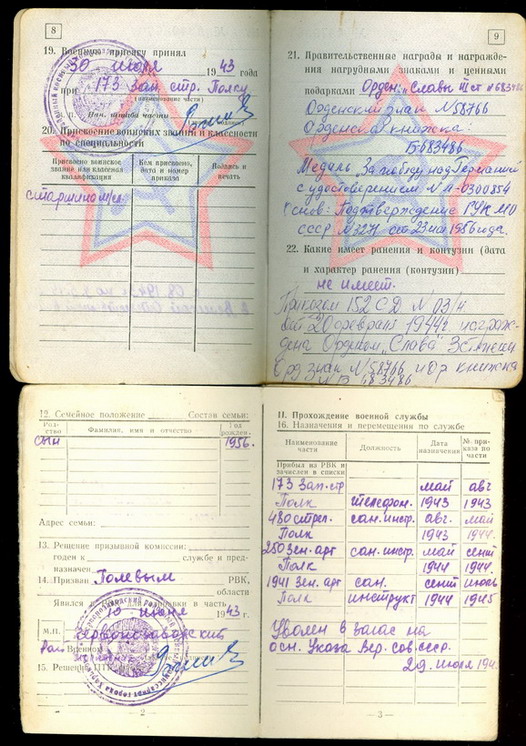 8
19. Военную присягу принял
30 июля 1943 года
при 173 зап. стр. Полку
(наименование части)
Нач. штаба части
20. Присвоение воинских званий и классности
по специальности
Присвоено воинское звание или классная квалификация
Кем присвоено, дата и номер приказа
Подпись и печать
старшина
9
21. Правительственные награды и награждения нагрудными знаками и ценными
подарками Орден „Славы III ст № 683486
Орденский знак N 58766
Орденская книжка:
Б 683486
Медаль „За победу над Германией
с удостоверением N Л-0300854
Основ: Подтверждение ГУК МО
СССР N 3271 от 23 мая 1986 года.
22. Какие имеет ранения и контузии (дата
и характер ранения (контузии)
не имеет.
Приказом 152 СД N 03/н
от 20 февраля 1944г. награж-
ден Орденом „Слава" 3 степени
Орд знак N 58766 и Ор книжка
N Б 683486
12. Семейное положение Состав семьи:
Родство
Фамилия, имя и отчество
Год рожден.
сын 1956.
Адрес семьи:
13. Решение призывной комиссии:
годен к службе и пред-
назначен
14. Призван Полевым РВК,
области
Явился для отправки в часть
10 июня 1943 г.
М.П. Червонозаводский
рай Военный
15. Решение
— 2 —
II. Прохождение военной службы
16. Назначения и перемещения по службе
Наименование части
Должность
Дата назначения
№ приказа по части
Прибыл из РВК и зачислен в списки
173 Зап. стр май авг
Полк телефон. 1943 1943
480 стрел. сан. инстр. авг. май
Полк 1943 1944
250 зен. арт сан. инстр. май сент
Полк 1944 1944.
1941 Зен. арт сан. сент июль
Полк инструкт 1944 1945
Уволен в запас на
осн. Указа Вер. Сов. СССР.
29. июля 194
— 3 —